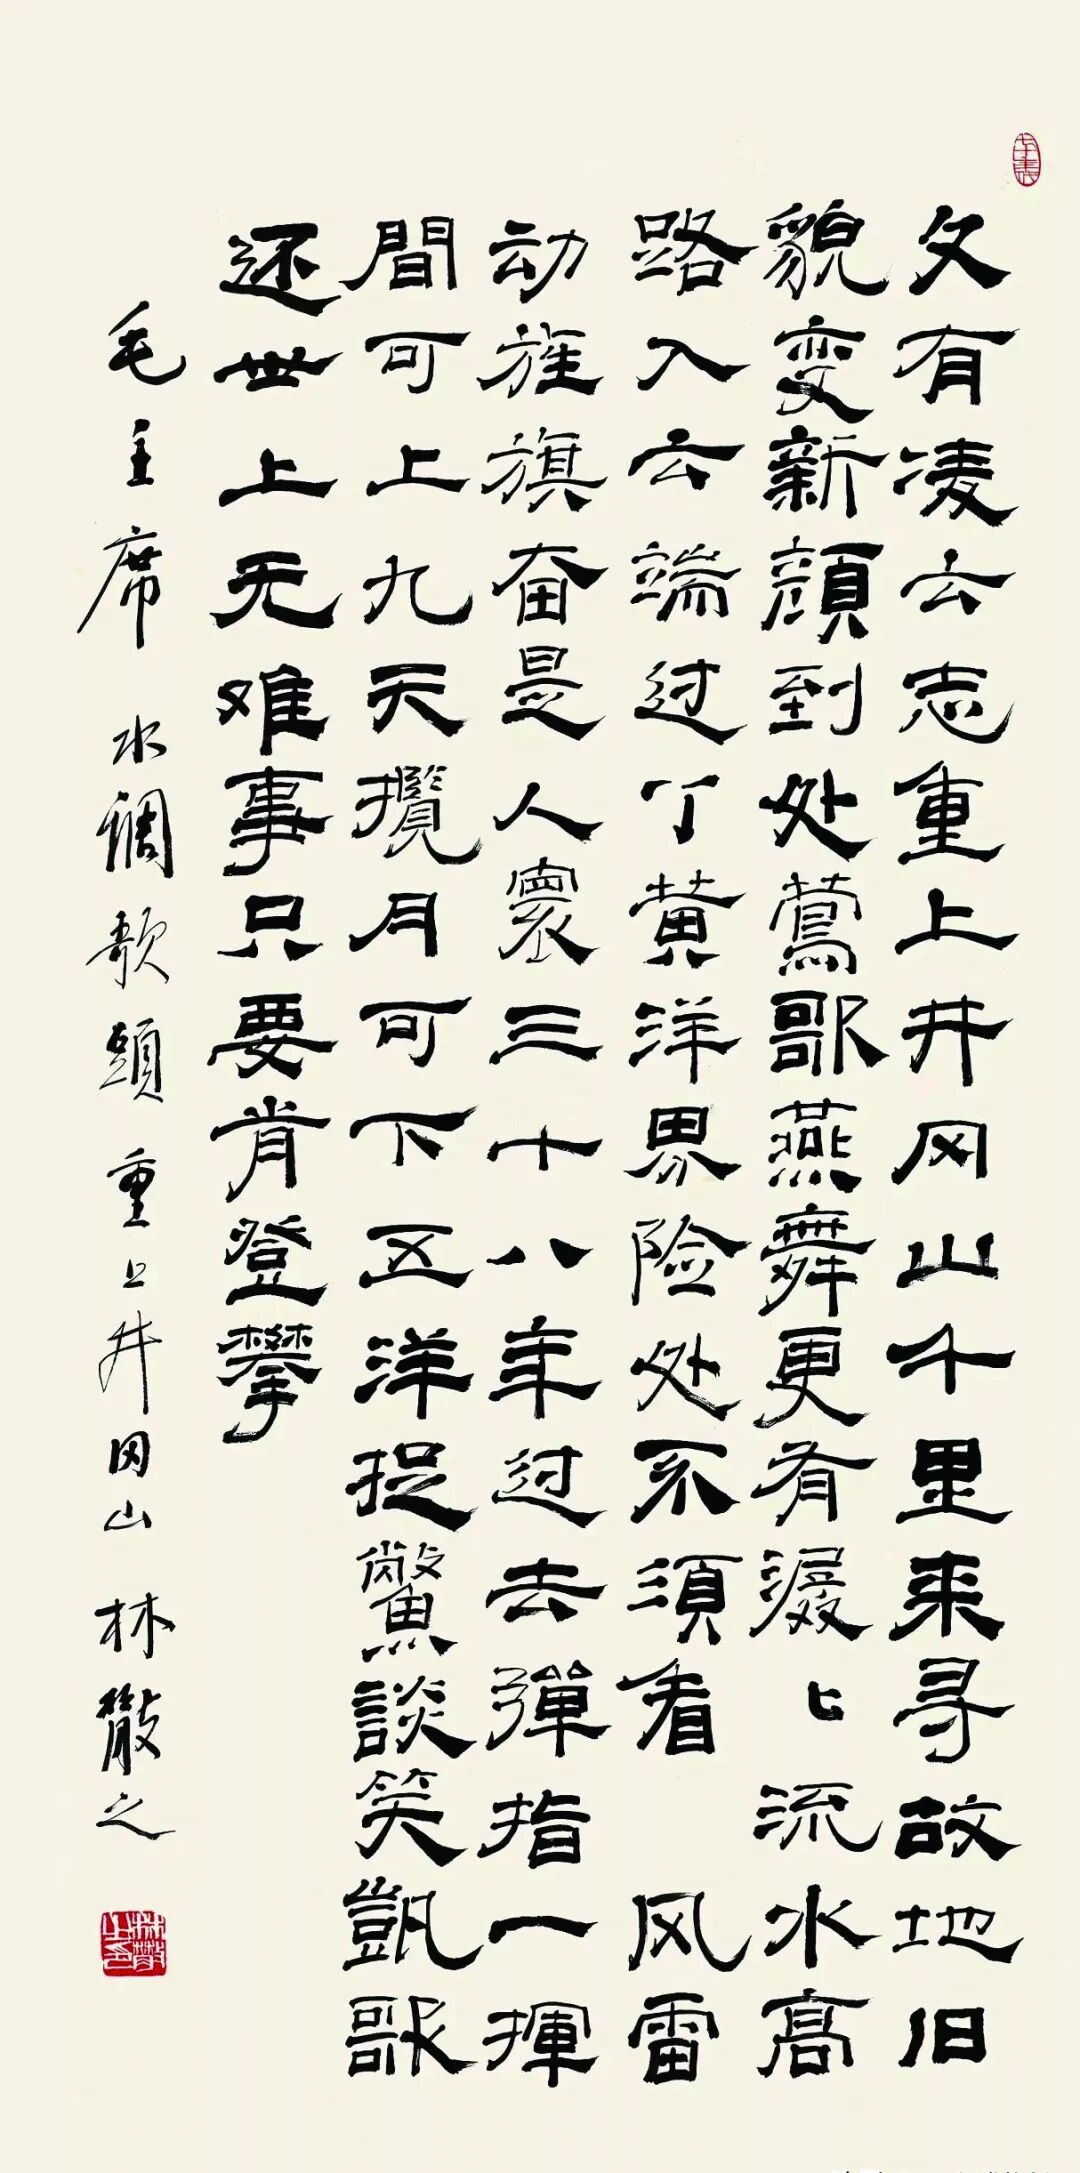 久有凌云志重上井冈山千里来寻故地旧
貌变新顔到处莺歌燕舞更有潺〻流水高
路入云端过了黄洋界险处不須看 风雷
动旌旗奋是人寰三十八年过去彈指一揮
間可上九天攬月可下五洋捉鱉談笑凱歌
还世上无难事只要肯登攀
毛主席 水调歌頭 重上井冈山 林散之
林散之印